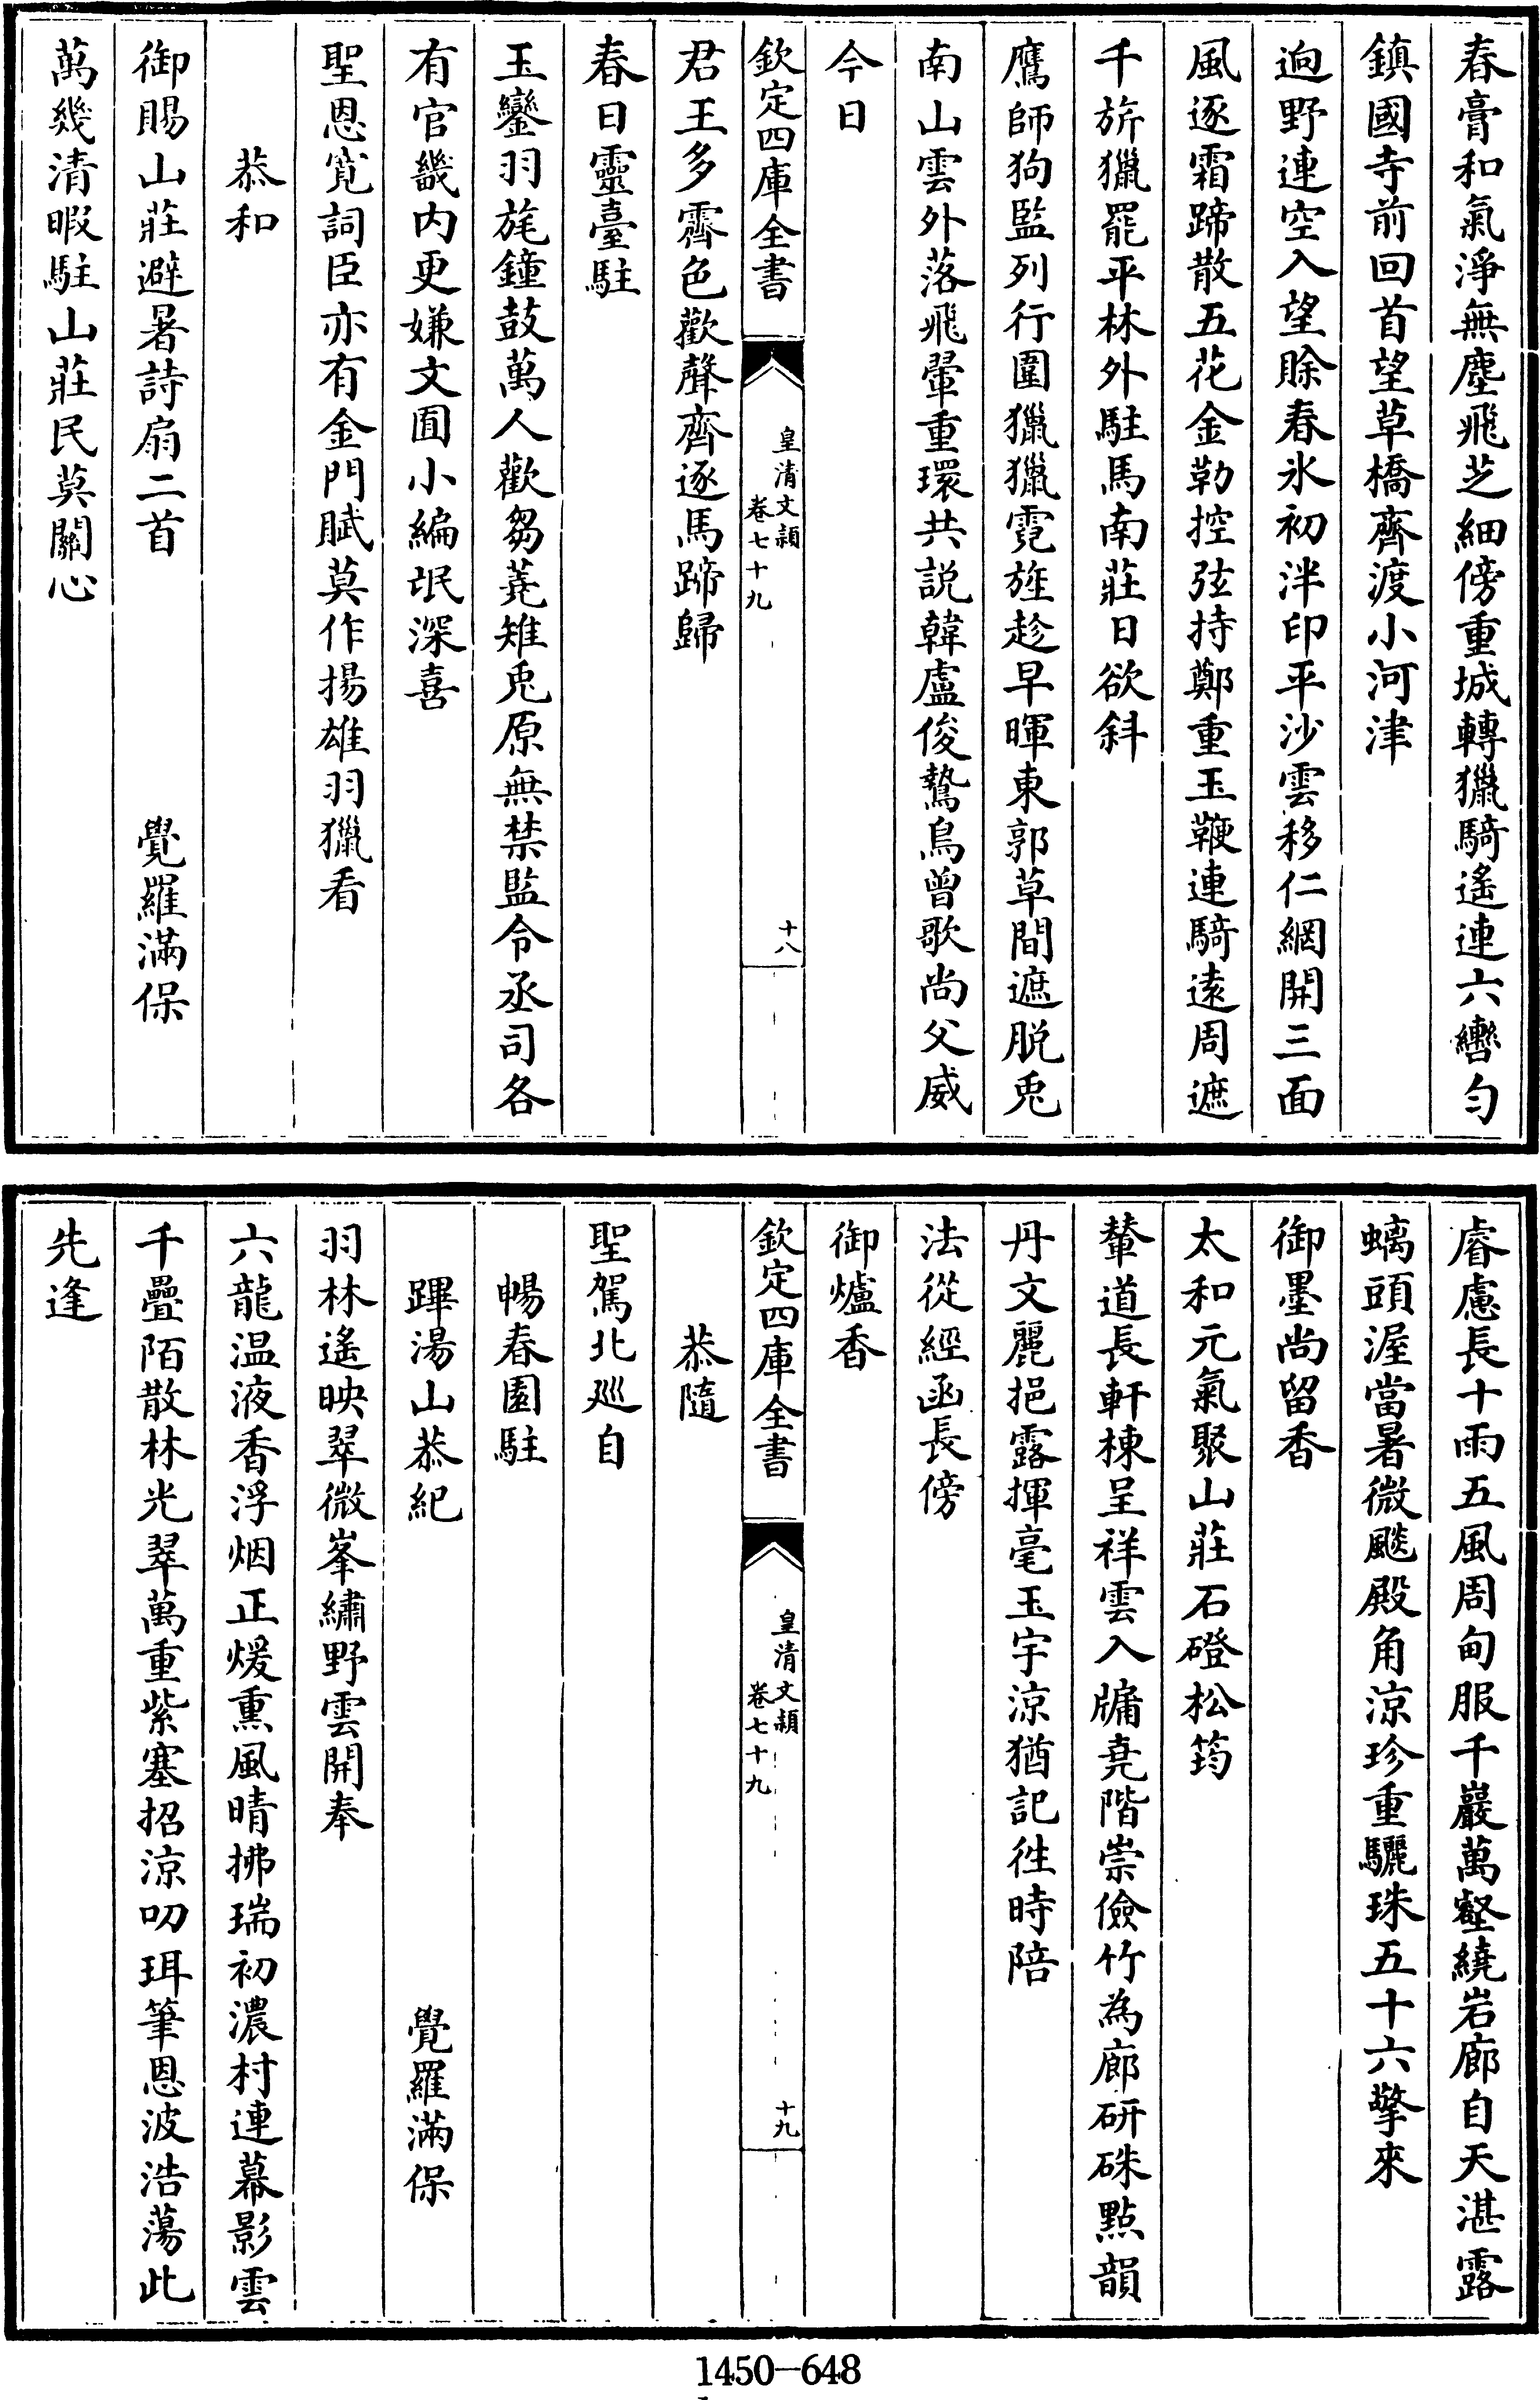 春膏和氣淨無塵飛芝細傍重城轉獵騎遙連六轡勻
鎮國寺前回首望草橋齊渡小河津
逈野連空入望賒春氷初泮印平沙雲移仁網開三面
風逐霜蹄散五花金勒控弦持鄭重玉鞭連騎逺周遮
千旂獵罷平林外駐馬南莊日欲斜
鷹師狗監列行圍獵獵霓旌趁早暉東郭草間遮脱兎
南山雲外落飛翬重環共説韓盧俊鷙鳥曾歌尚父威
今日
欽定四庫全書
皇清文穎
卷七十九
十八
君王多霽色歡聲齊逐馬蹄歸
春日靈臺駐
玉鑾羽旄鐘鼓萬人歡芻蕘雉兎原無禁監令丞司各
有官畿内更嫌文囿小編氓深喜
聖恩寛詞臣亦有金門賦莫作揚雄羽獵看
恭和
御賜山莊避暑詩扇二首
覺羅滿保
萬幾清暇駐山莊民莫關心
睿慮長十雨五風周甸服千巖萬壑繞岩廊自天湛露
螭頭渥當暑微颸殿角涼珍重驪珠五十六擎來
御墨尚留香
太和元氣聚山莊石磴松筠
輦道長軒棟呈祥雲入牖尭階崇儉竹為廊研硃點韻
丹文麗挹露揮毫玉宇涼猶記徃時陪
法從經函長傍
御爐香
欽定四庫全書
皇清文穎
卷七十九
十九
恭隨
聖駕北廵自
暢春園駐
蹕湯山恭紀
覺羅滿保
羽林遙映翠微峯繡野雲開奉
六龍温液香浮烟正煖熏風晴拂瑞初濃村連幕影雲
千疊陌散林光翠萬重紫塞招涼叨珥筆恩波浩蕩此
先逢
1450-648